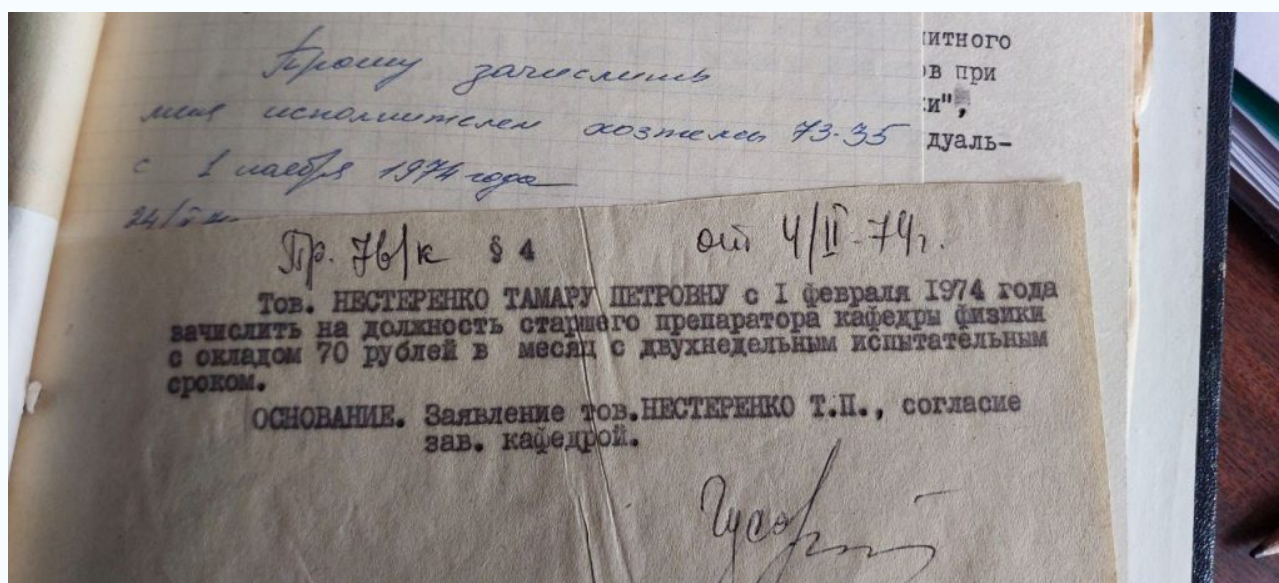 Прошу зачислить
меня исполнителем хозтемы 73-35
с 1 ноября 1974 года
24/X
итного
в при
и",
дуаль-
Пр. 76/к § 4 от 4/II-74г.
Тов. НЕСТЕРЕНКО ТАМАРУ ПЕТРОВНУ с I февраля I974 года
зачислить на должность старшего препаратора кафедры физики
с окладом 70 рублей в месяц с двухнедельным испытательным
сроком.
ОСНОВАНИЕ. Заявление тов.НЕСТЕРЕНКО Т.П., согласие
зав. кафедрой.